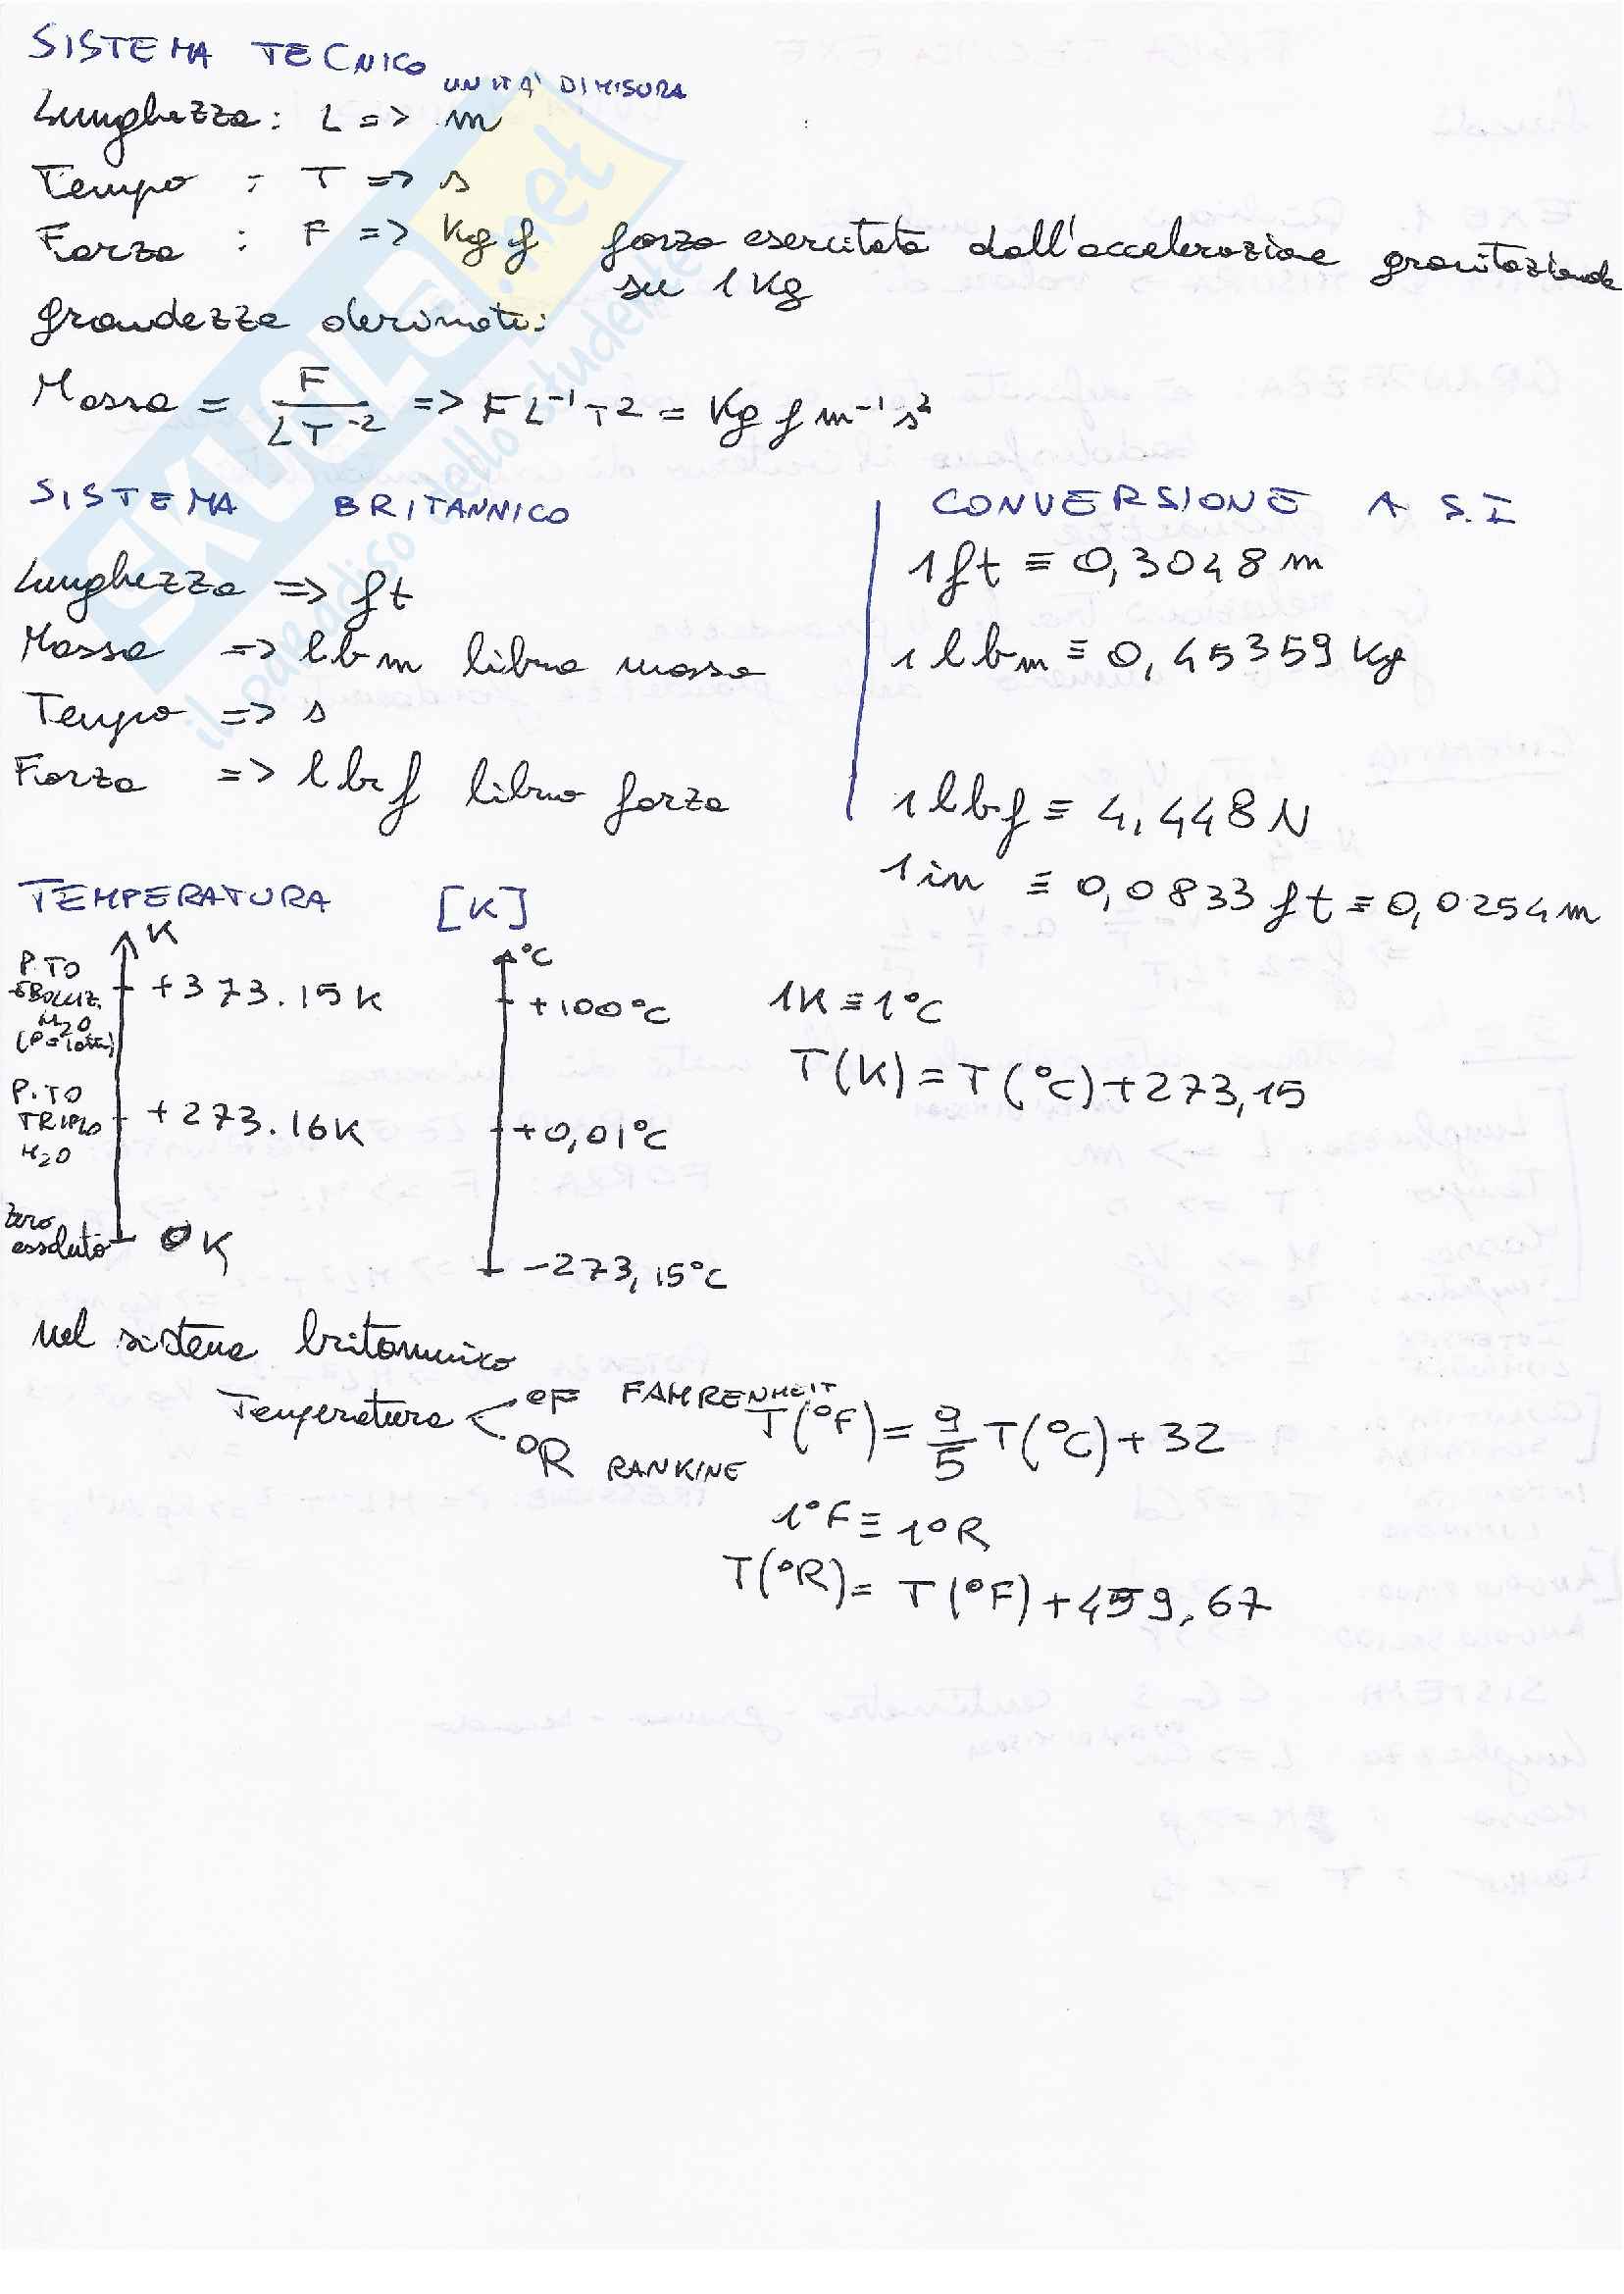 SISTEMA TECNICO
UNITÀ DI MISURA
Lunghezza: L => m
Tempo : T => s
Forza : F => Kg f forza esercitata dall'accelerazione gravitazionale
su 1 Kg
grandezze derivate:
Massa = F / LT⁻² => F L⁻¹ T² = Kg f m⁻¹ s²
SISTEMA BRITANNICO
Lunghezza => ft
Massa => lbm libra massa
Tempo => s
Forza => lbf libra forza
CONVERSIONE A S.I
1 ft ≡ 0,3048 m
1 lbm ≡ 0,45359 Kg
1 lbf ≡ 4,448 N
1 in ≡ 0,0833 ft ≡ 0,0254 m
TEMPERATURA [K]
K
P.TO EBOLLIZ. H₂O (P=1atm) +373.15 K
P.TO TRIPLO H₂O +273.16 K
zero assoluto 0 K
°C
+100°C
+0,01°C
-273,15°C
1K ≡ 1°C
T(K) = T(°C) + 273,15
nel sistema britannico
Temperatura < °F FAHRENHEIT
°R RANKINE
T(°F) = 9/5 T(°C) + 32
1°F ≡ 1°R
T(°R) = T(°F) + 459,67
SKUOLA.net
il paradiso dello studente